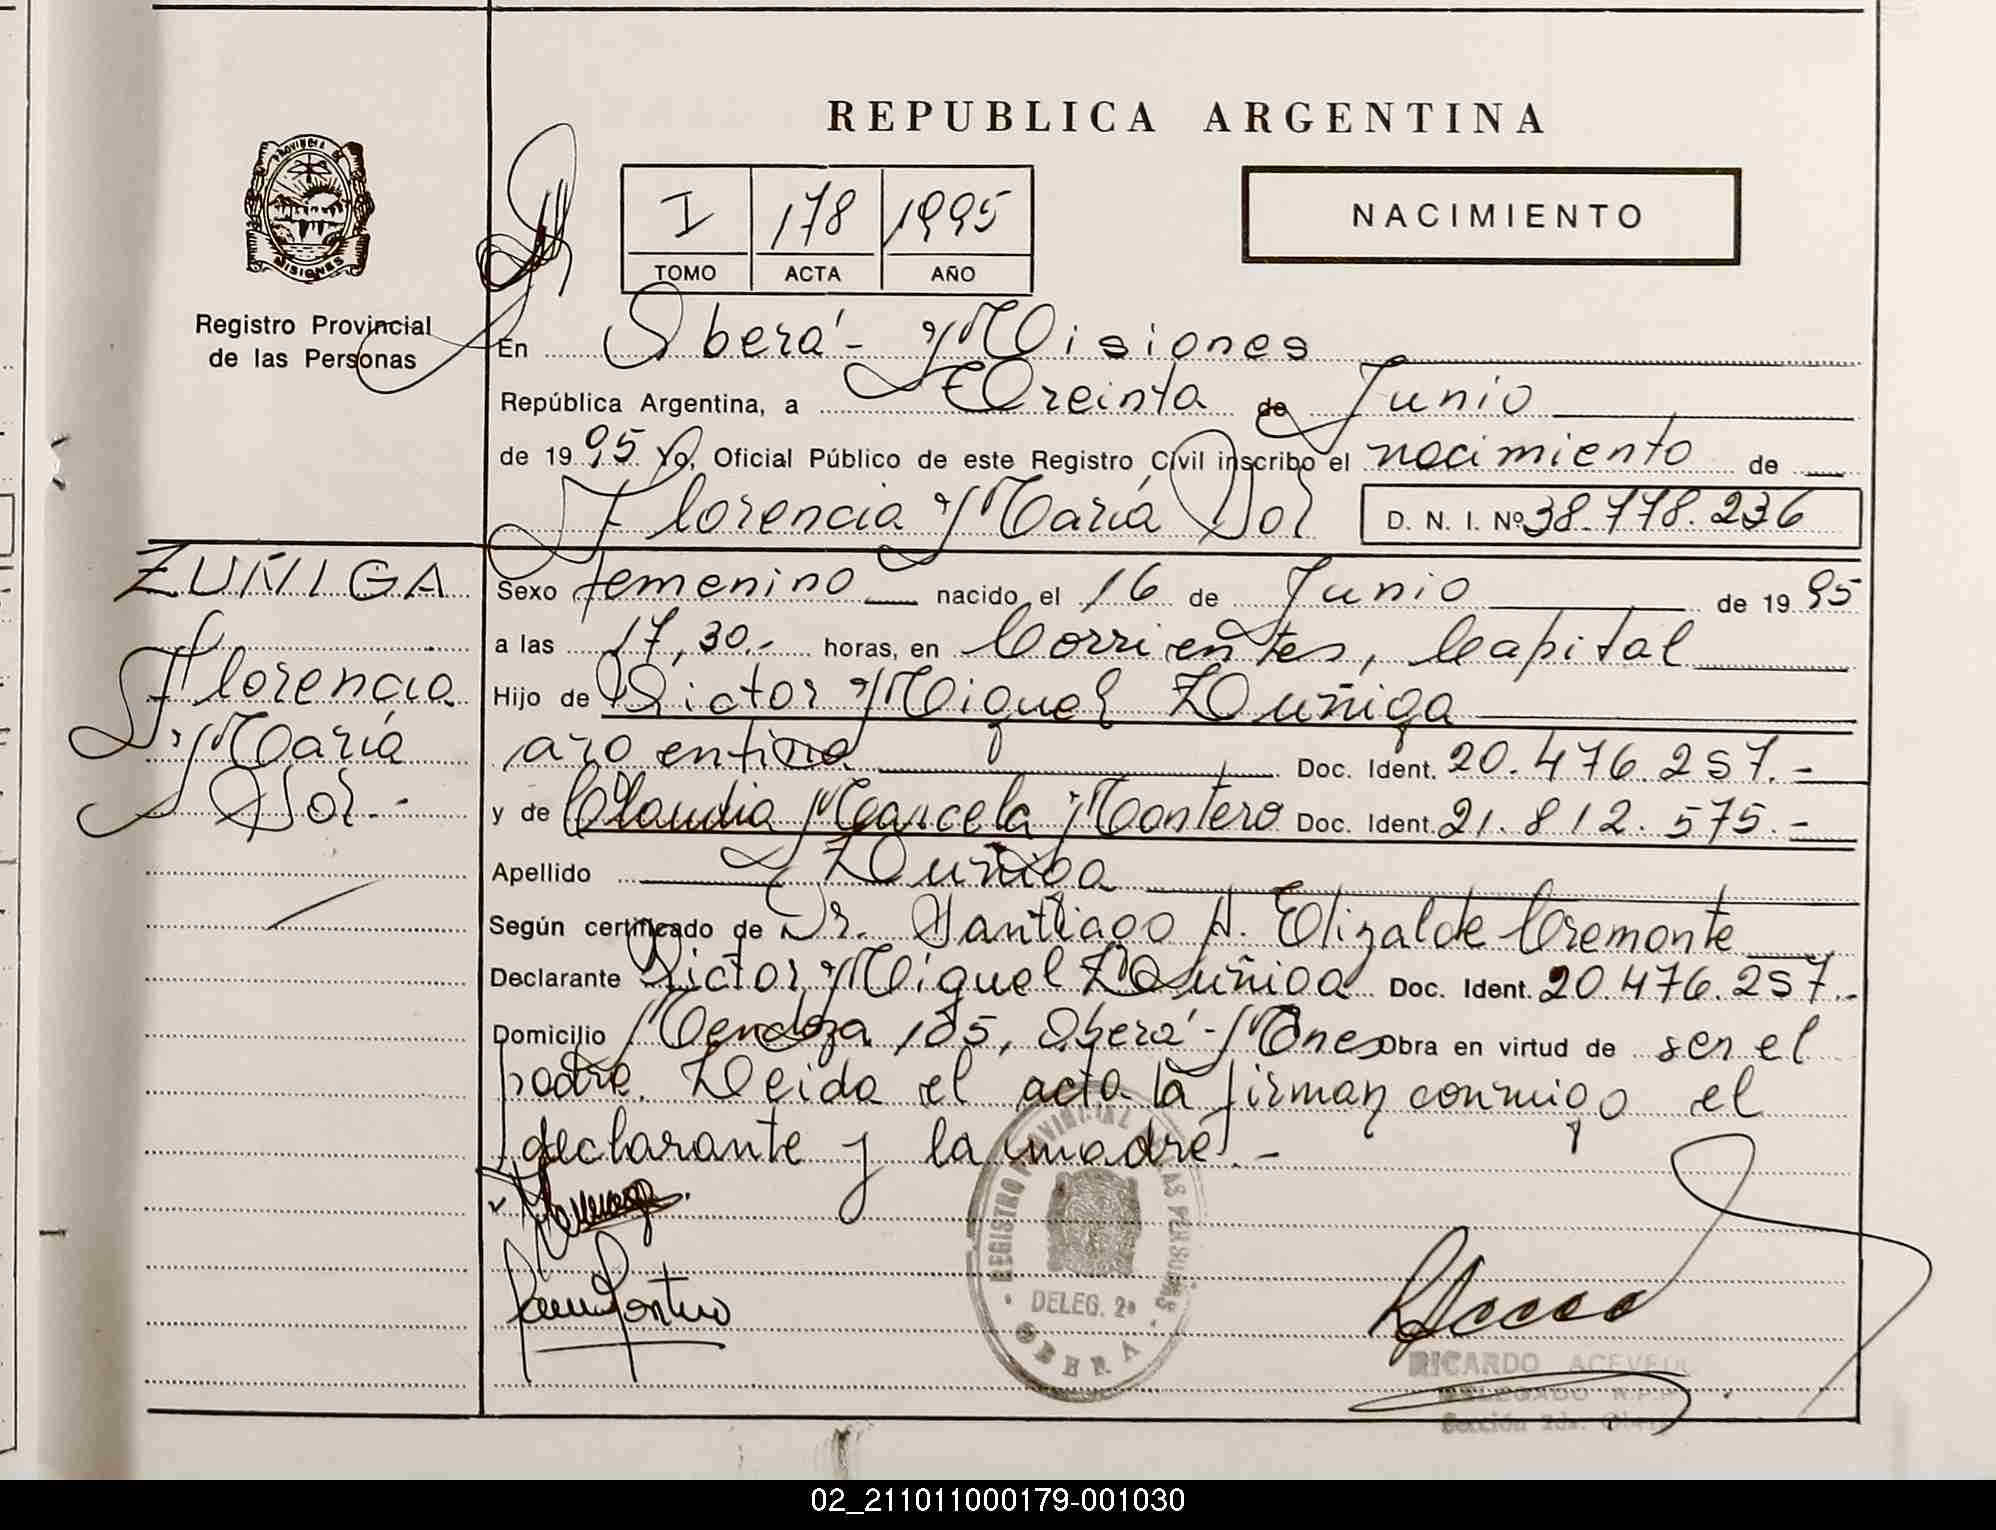 REPUBLICA ARGENTINA
PROVINCIA DE
MISIONES
Registro Provincial
de las Personas
I 178 1995
TOMO ACTA AÑO
NACIMIENTO
En Oberá - Misiones
República Argentina, a Treinta de Junio
de 1995 Yo, Oficial Público de este Registro Civil inscribo el nacimiento de
Florencia María Sol D. N. I. Nº 38.778.236
ZUÑIGA
Florencia
María
Sol.-
Sexo femenino nacido el 16 de Junio de 1995
a las 17,30.- horas, en Corrientes, Capital
Hijo de Victor Miguel Zuñiga
argentina Doc. Ident. 20.476.257.-
y de Claudia Marcela Montero Doc. Ident. 21.812.575.-
Apellido Zuñiga
Según certificado de Dr. Santiago A. Elizalde Cremonte
Declarante Victor Miguel Zuñiga Doc. Ident. 20.476.257.-
Domicilio Mendoza 105, Oberá - Mnes Obra en virtud de ser el
padre. Leida el acta la firman conmigo el
declarante y la madre.-
REGISTRO PROVINCIAL DE LAS PERSONAS
DELEG. 2ª
OBERA
RICARDO ACEVEDO
DELEGADO R.P.P.
Sección 2da. Oberá
02_211011000179-001030